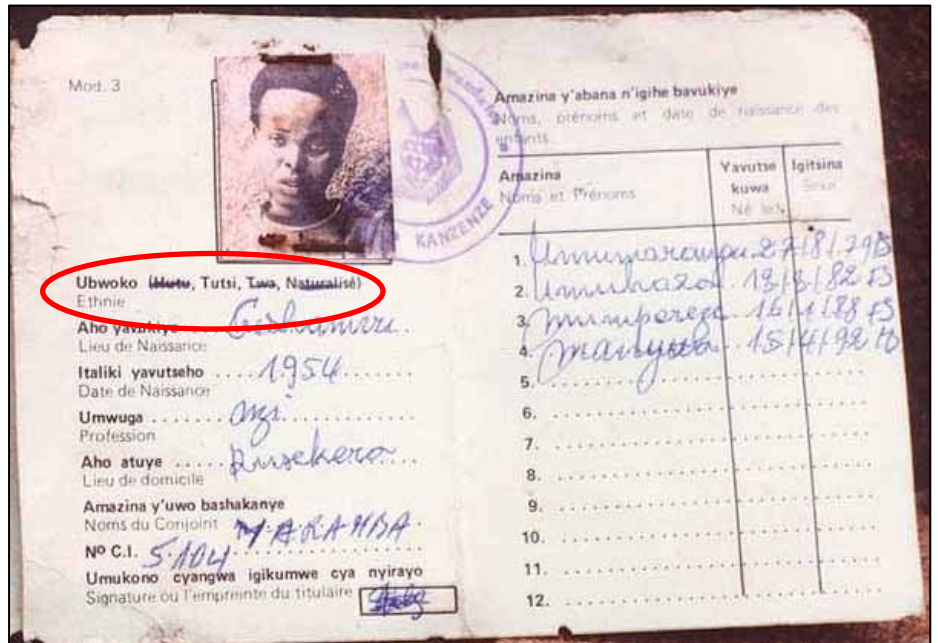 Mod. 3
Ubwoko (Hutu, Tutsi, Twa, Naturalisé)
Ethnie
Aho yavukiye
Lieu de Naissance
Italiki yavutseho ..... 1954 .......
Date de Naissance
Umwuga .......
Profession
Aho atuye ..... Rusekera ....
Lieu de domicile
Amazina y'uwo bashakanye
Noms du Conjoint MARAMBA.
Nº C.I. 5.104 ..........
Umukono cyangwa igikumwe cya nyirayo
Signature ou l'empreinte du titulaire
KANZENZE
Amazina y'abana n'igihe bavukiye
Noms, prénoms et date de naissance des
enfants
Amazina Yavutse kuwa Igitsina
Noms et Prénoms Né le Sexe
1. 27/8/79
2. Umuhaza 13/3/82 F
3. 16/1/88 F
4. 15/4/92
5. ..........
6. ..........
7. ..........
8. ..........
9. ..........
10. ..........
11. ..........
12. ..........